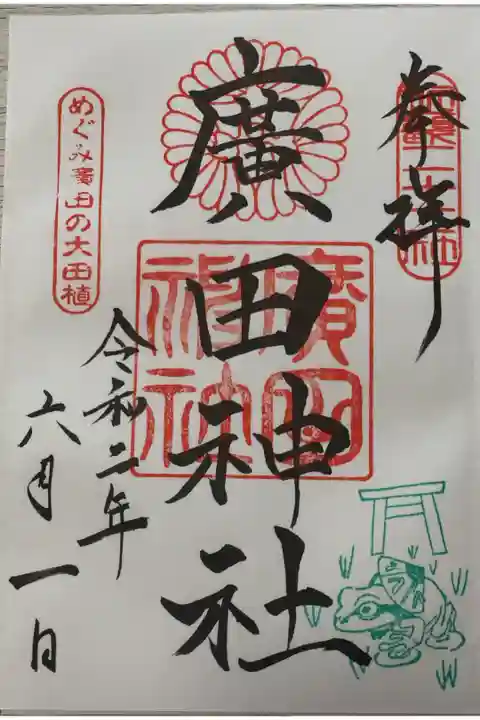 奉拝
二十二社
廣田神社
廣田神社
令和二年
六月一日
めぐみ廣田の大田植